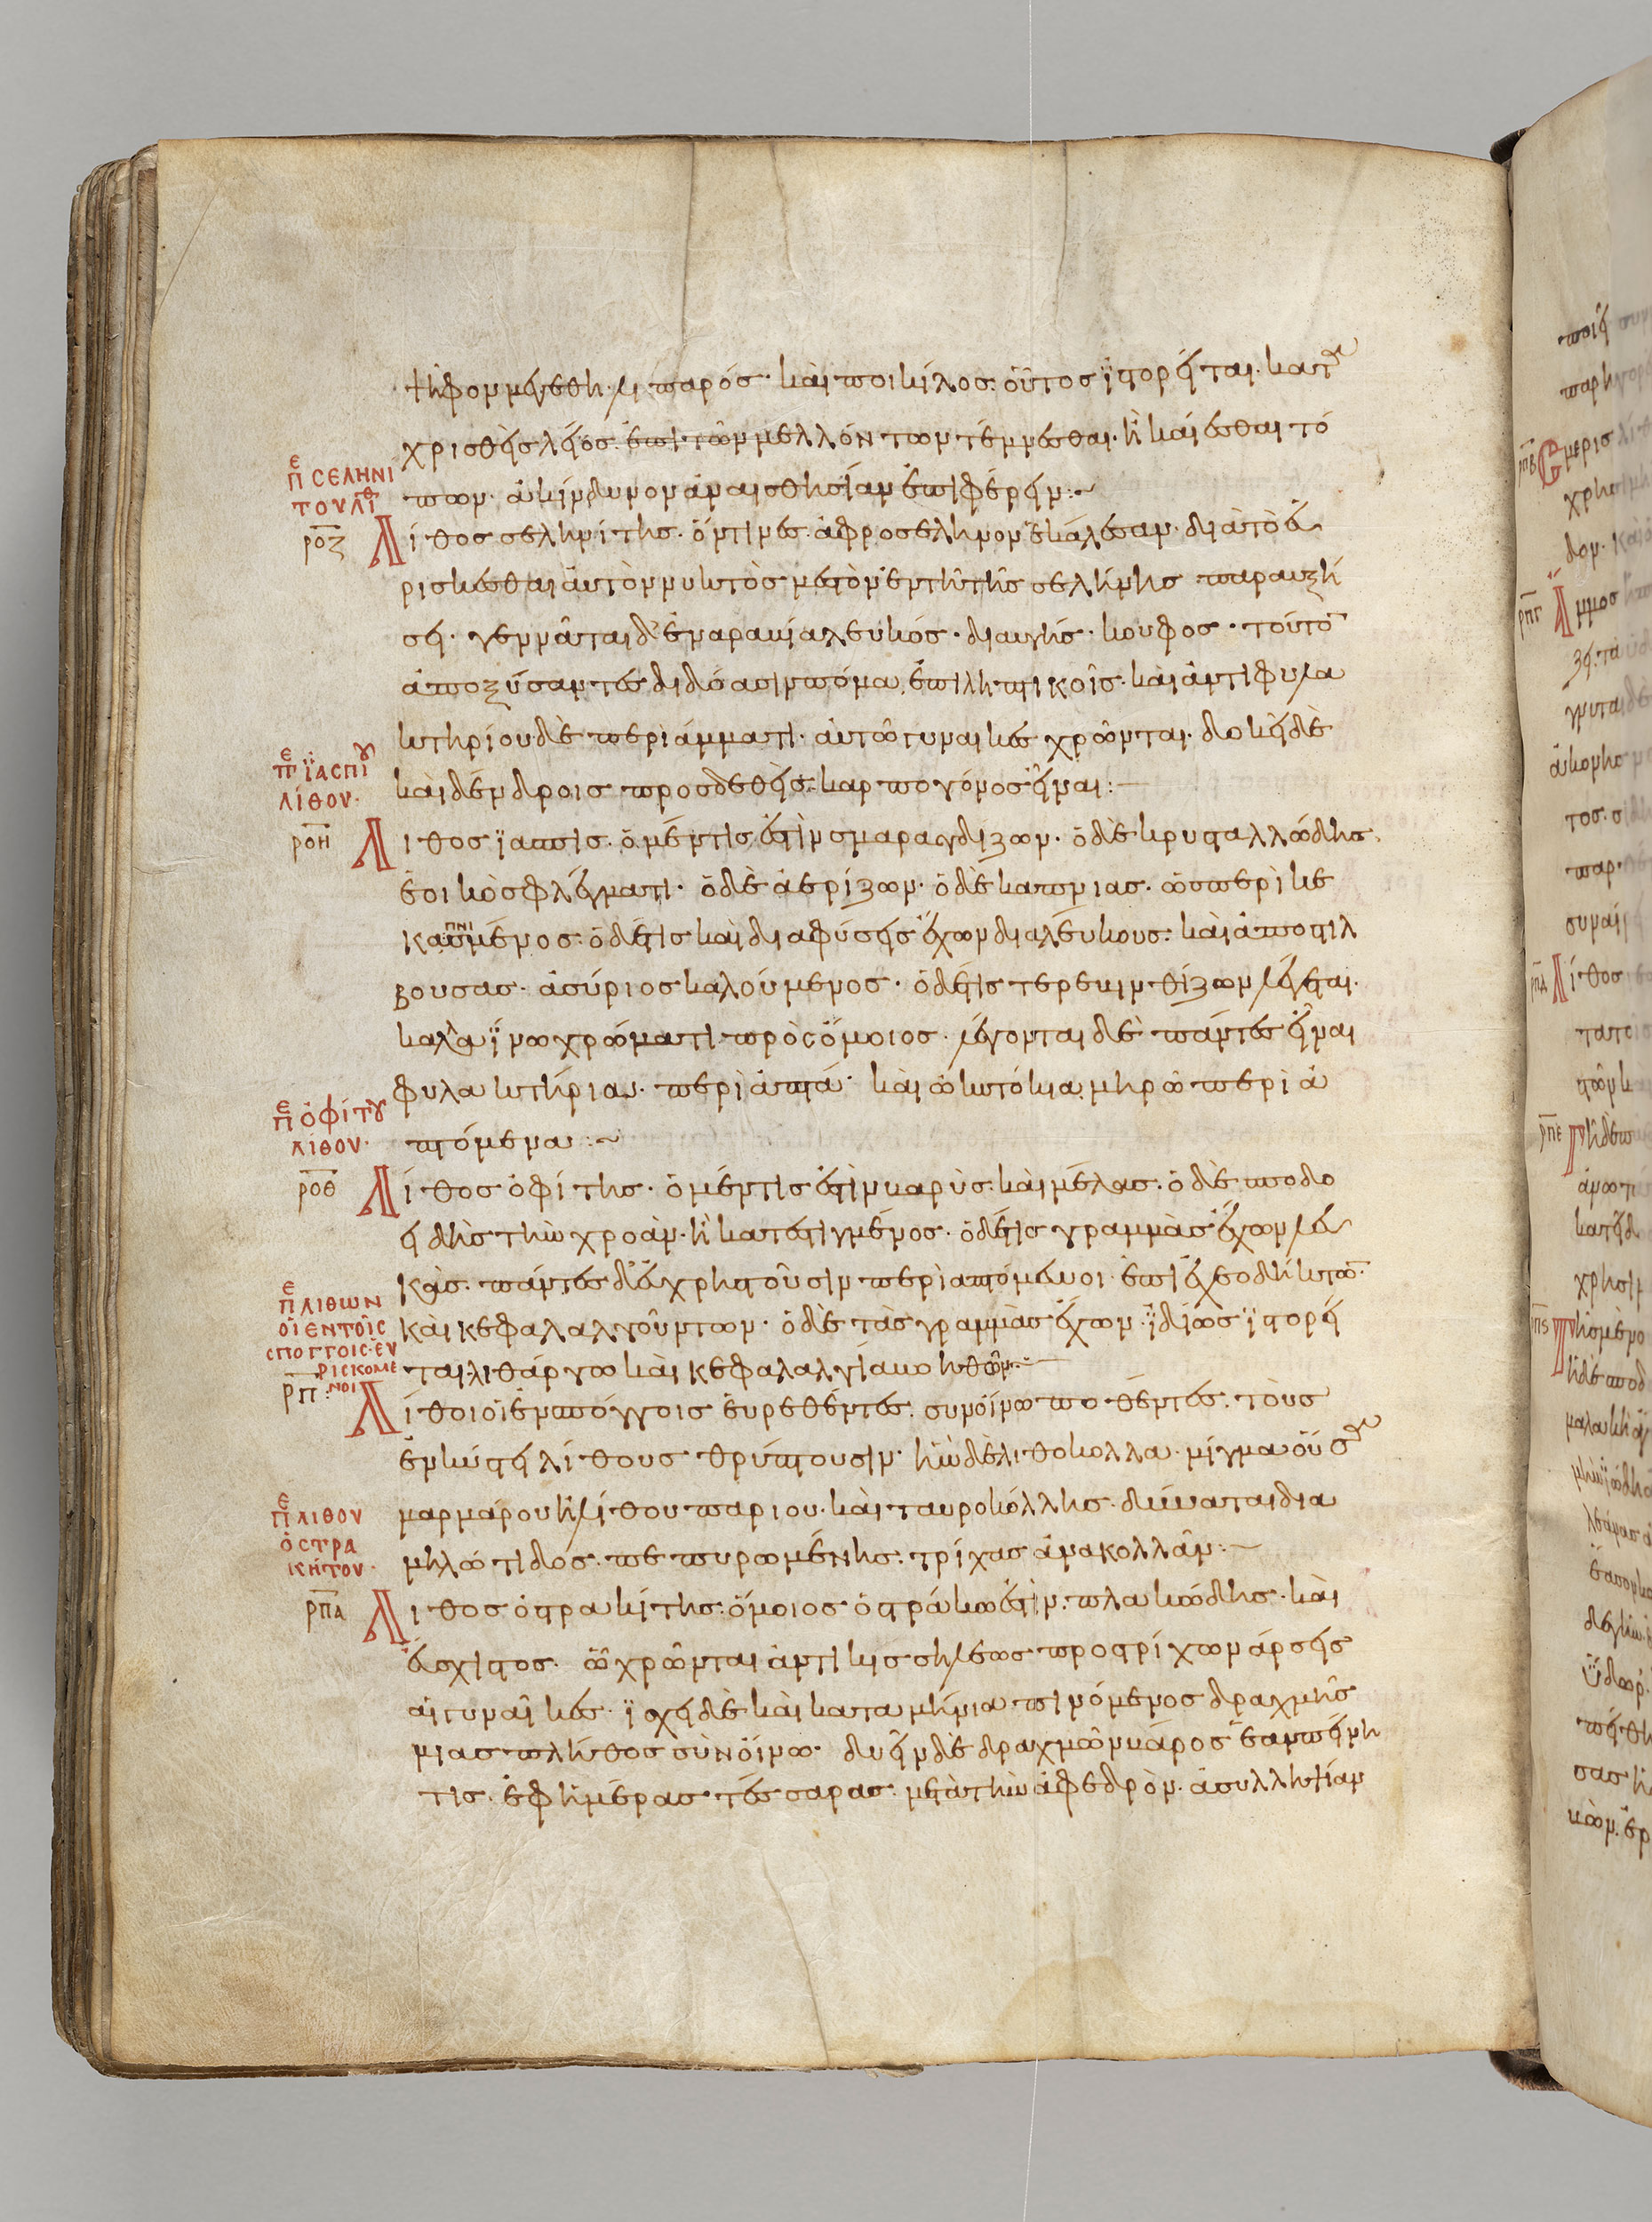 ψηφον μέγεθη· λιπαρός· καὶ ποικίλος· οὗτος ἱστορεῖται· κατα
χρισθεὶς λεῖος· ἐπὶ τῶν μελλόντων τέμνεσθαι· ἢ καίεσθαι τό
πων· ἀκίνδυνον ἀναισθησίαν ἐπιφέρειν:~
Π̅Ε ΣΕΛΗΝΙ
ΤΟΥ ΛΙΘ
ροζ
Λίθος σεληνίτης· ὅν τινὲς ἀφροσέληνον ἐκάλεσαν· διὰ τὸ εὑ
ρίσκεσθαι αὐτὸν νυκτὸς μεστὸν ἐν τῆ τῆς σελήνης παραυξή
σει· γεννᾶται δὲ ἐν αραβία λευκός· διαυγής· κουφος· τοῦτον
ἀποξύσαντες διδόασιν πόμα ἐπιληπτικοῖς· καὶ ἀντὶ φυλα
κτηρίου δὲ περιάμματι· αὐτῶ γυναικὲς χρῶνται· δοκεῖ δὲ
καὶ δένδροις προσδεθεὶς καρπογόνος εἶναι:—
Π̅Ε ΪΑΣΠΙΟΥ
ΛΙΘΟΥ·
ροη
Λιθος ϊασπις· ὁ μέν τις ἐστὶν σμαραγδιζων· ὁ δὲ κρυσταλλώδης
ἐοικὸς φλέγματι· ὁ δὲ ἀερίζων· ὁ δὲ καπνιας· ὥσπερὶ κε
καπνισμένος· ὁ δέ τις καὶ διαφύσεις ἔχων διαλεύκους· καὶ ἀποστιλ
βουσας· ἀσύριος καλούμενος· ὁ δέ τις τερεβινθίζων λέγεται·
καλαΐνω χρώματι προσόμοιος· λέγονται δὲ πάντες εἶναι
φυλακτήρια· περίαπτά· καὶ ὠκυτόκια μηρῶ περια
πτόμενα:~
Π̅Ε ὈΦΙΤΟΥ
ΛΙΘΟΥ·
ροθ
Λίθος ὀφίτης· ὁ μέν τις ἐστὶν βαρὺς καὶ μέλας· ὁ δὲ σποδο
ειδὴς τὴν χροὰν· ἢ κατεστιγμένος· ὁ δέ τις γραμμὰς ἔχων λευ
κὰς· πάντες δ' εὐχρηστοῦσιν περιαπτόμενοι ἐπὶ ἐχεοδήκτων·
καὶ κεφαλαλγούντων· ὁ δὲ τὰς γραμμὰς ἔχων· ϊδίως ϊστορεῖ
ται ληθάργω καὶ κεφαλαλγία βοηθῶν:—
Π̅Ε ΛΙΘΩΝ
ΟΙ ΕΝ ΤΟΙΣ
ΣΠΟΓΓΟΙΣ ΕΥ
ΡΙΣΚΟΜΕ
ΝΟΙ
ρπ
Λίθοι οἱ ἐν σπόγγοις εὑρεθέντες· συν οἴνω ποθέντες· τοὺς
ἐν κύστει λίθους θρύπτουσιν· ἡ δὲ λιθοκολλα· μίγμα οὖσα
μαρμάρου ἢ λίθου παριου· καὶ ταυροκόλλης· δύναται δια
μηλώτιδος· πεπυρωμένης· τρίχας ἀνακολλᾶν:~
Π̅Ε ΛΙΘΟΥ
ὈΣΤΡΑ
ΚΙΤΟΥ·
ρπα
Λιθος ὀστρακίτης· ὅμοιος ὀστράκω ἐστὶν· πλακώδης· καὶ
εὔσχιστος· ᾧ χρῶνται ἀντὶ κισσήλεως προς τρίχων ἄρσεις
αἱ γυναῖκες· ϊσχει δὲ καὶ καταμήνια πινόμενος δραχμῆς
μιας πλῆθος σὺν οἴνω· δυεῖν δὲ δραχμῶν βάρος ἐὰν πείνη
τις· ἐφ' ἡμέρας τέσσαρας· μετὰ τὴν ἀφεδρὸν· ἀσυλληψίαν